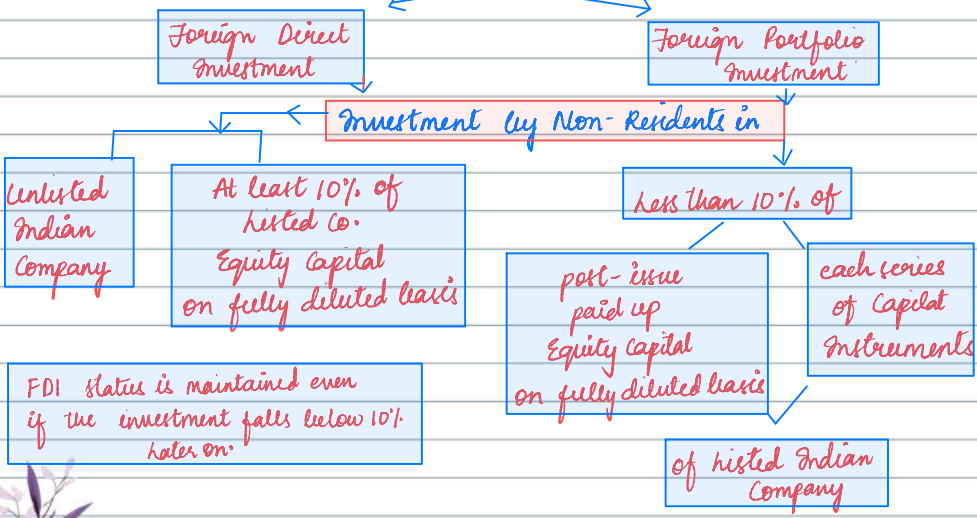 Foreign Direct
Investment
Foreign Portfolio
Investment
Investment by Non-Residents in
Unlisted
Indian
Company
At least 10% of
Listed Co.
Equity Capital
on fully diluted basis
Less than 10% of
post-issue
paid up
Equity Capital
on fully diluted basis
each series
of Capital
Instruments
FDI status is maintained even
if the investment falls below 10%
Later on.
of Listed Indian
Company